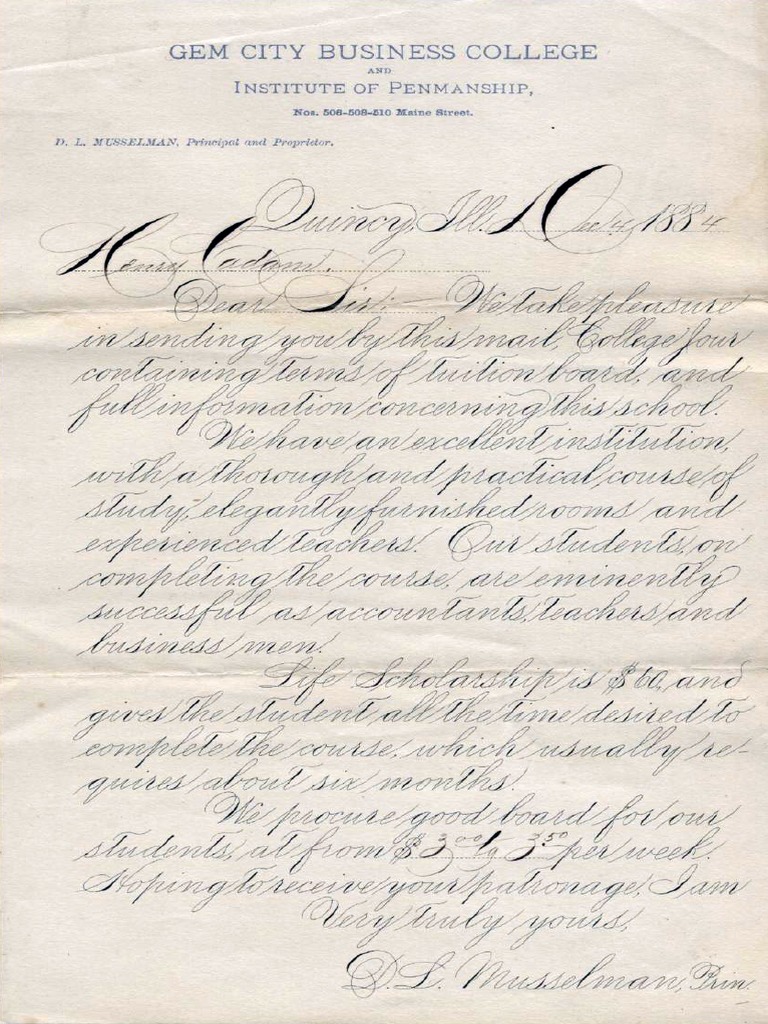 GEM CITY BUSINESS COLLEGE
AND
INSTITUTE OF PENMANSHIP,
Nos. 506-508-510 Maine Street.
D. L. MUSSELMAN, Principal and Proprietor.
Quincy, Ill. Dec 4, 1884
Henry Cadam.
Dear Sir:— We take pleasure
in sending you by this mail, College Jour
containing terms of tuition board, and
full information concerning this school.
We have an excellent institution,
with a thorough and practical course of
study, elegantly furnished rooms and
experienced teachers. Our students, on
completing the course, are eminently
successful as accountants, teachers and
business men.
Life Scholarship is $60, and
gives the student all the time desired to
complete the course, which usually re-
quires about six months.
We procure good board for our
students, at from $3.00 to 3.50 per week.
Hoping to receive your patronage, I am
Very truly yours,
D. L. Musselman, Prin.